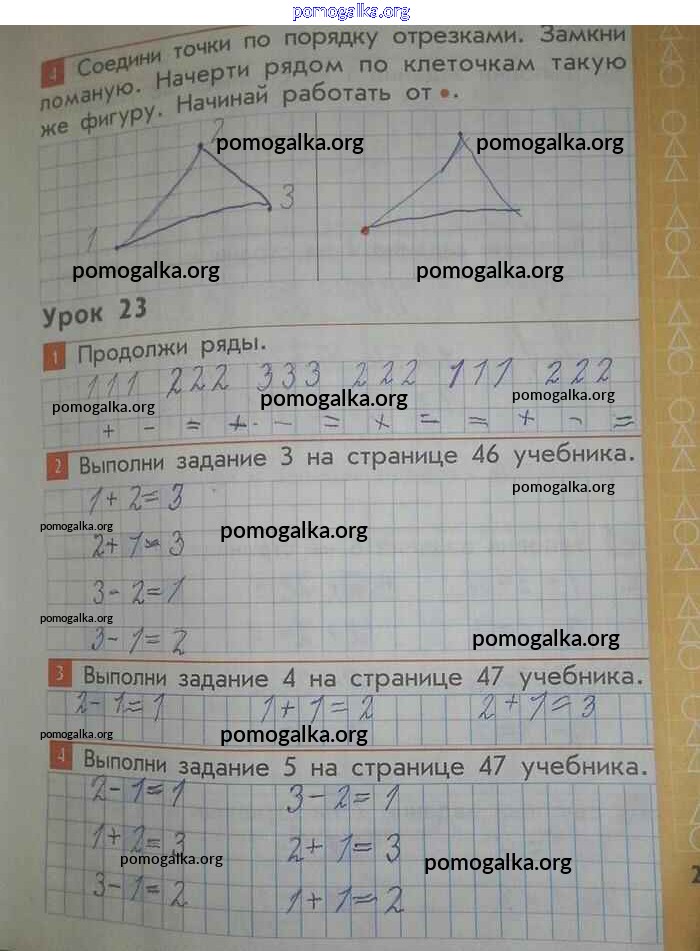 pomogalka.org
4 Соедини точки по порядку отрезками. Замкни
ломаную. Начерти рядом по клеточкам такую
же фигуру. Начинай работать от •.
2
pomogalka.org pomogalka.org
3
1
pomogalka.org pomogalka.org
Урок 23
1 Продолжи ряды.
111 222 333 222 111 222
pomogalka.org pomogalka.org pomogalka.org
+ - = + - = + - = + - =
2 Выполни задание 3 на странице 46 учебника.
1+2=3
pomogalka.org
pomogalka.org pomogalka.org
2+1=3
3-2=1
pomogalka.org
3-1=2
pomogalka.org
3 Выполни задание 4 на странице 47 учебника.
2-1=1 1+1=2 2+1=3
pomogalka.org pomogalka.org
4 Выполни задание 5 на странице 47 учебника.
2-1=1 3-2=1
1+2=3 2+1=3
pomogalka.org pomogalka.org
3-1=2 1+1=2
2